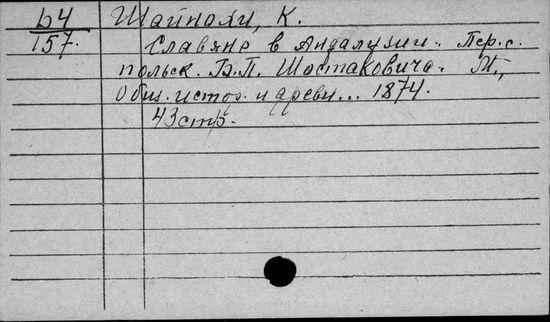 Б4 Шайнохи, К.
157. Славяне в Андалузии. Пер. с
польск. В.П. Шостаковича. М.,
Общ. истор. и древн... 1874.
43 стр.